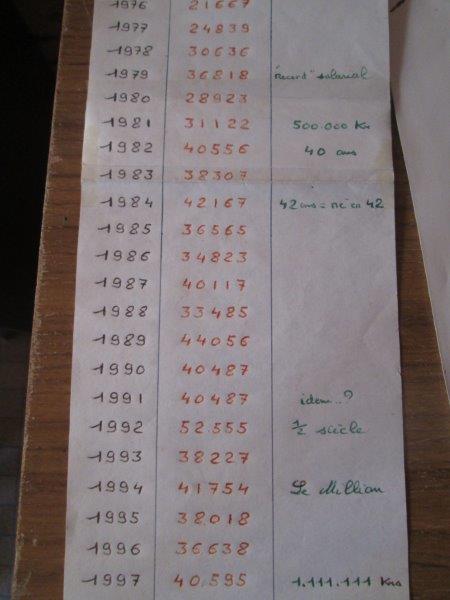 1976 21667
1977 24839
1978 30636
1979 36818 "record" salarial
1980 28923
1981 31122 500.000 Km
1982 40556 40 ans
1983 38307
1984 42167 42 ans = né en 42
1985 36565
1986 34823
1987 40117
1988 33485
1989 44056
1990 40487
1991 40487 idem..?
1992 52.555 1/2 siècle
1993 38227
1994 41754 Le Million
1995 38018
1996 36638
1997 40.595 1.111.111 Kms